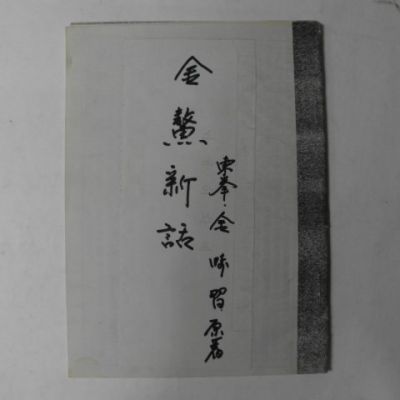 金鰲新話
東峯·金時習原著